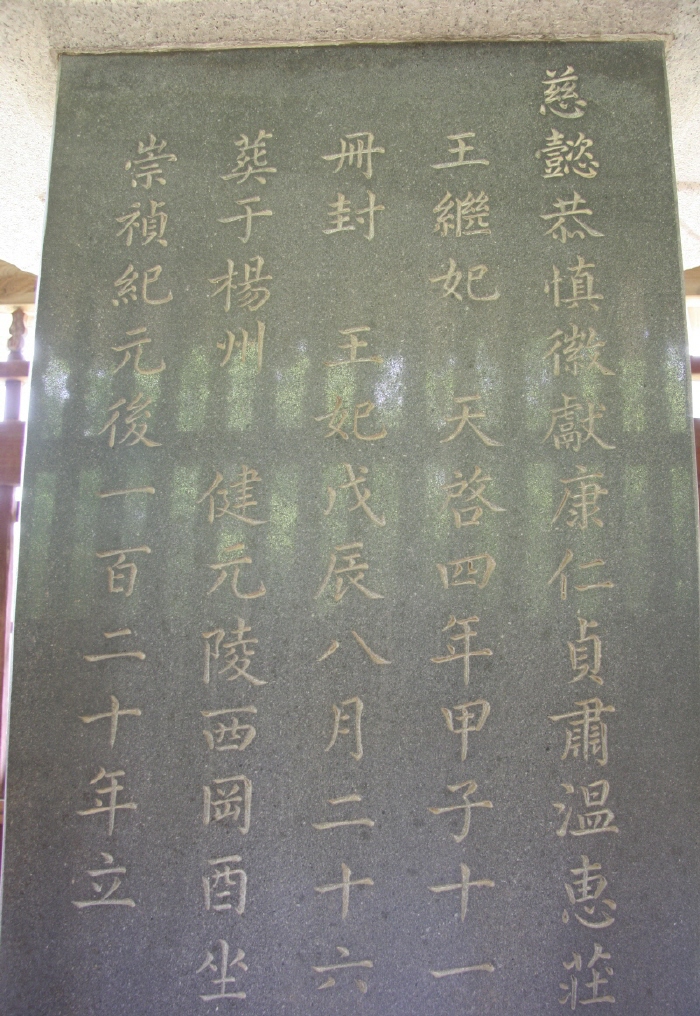 慈懿恭慎徽獻康仁貞肅溫惠莊
王繼妃 天啓四年甲子十一
冊封 王妃戊辰八月二十六
葬于楊州 健元陵西岡酉坐
崇禎紀元後一百二十年立